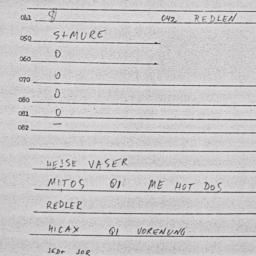 041 042 REDLEN
050 S+MURE
060 0
070 0
080 0
081 0
082 —
VASER
MITOS QI ME HOT DOS
REDLER
HICAX QI VORENUNG